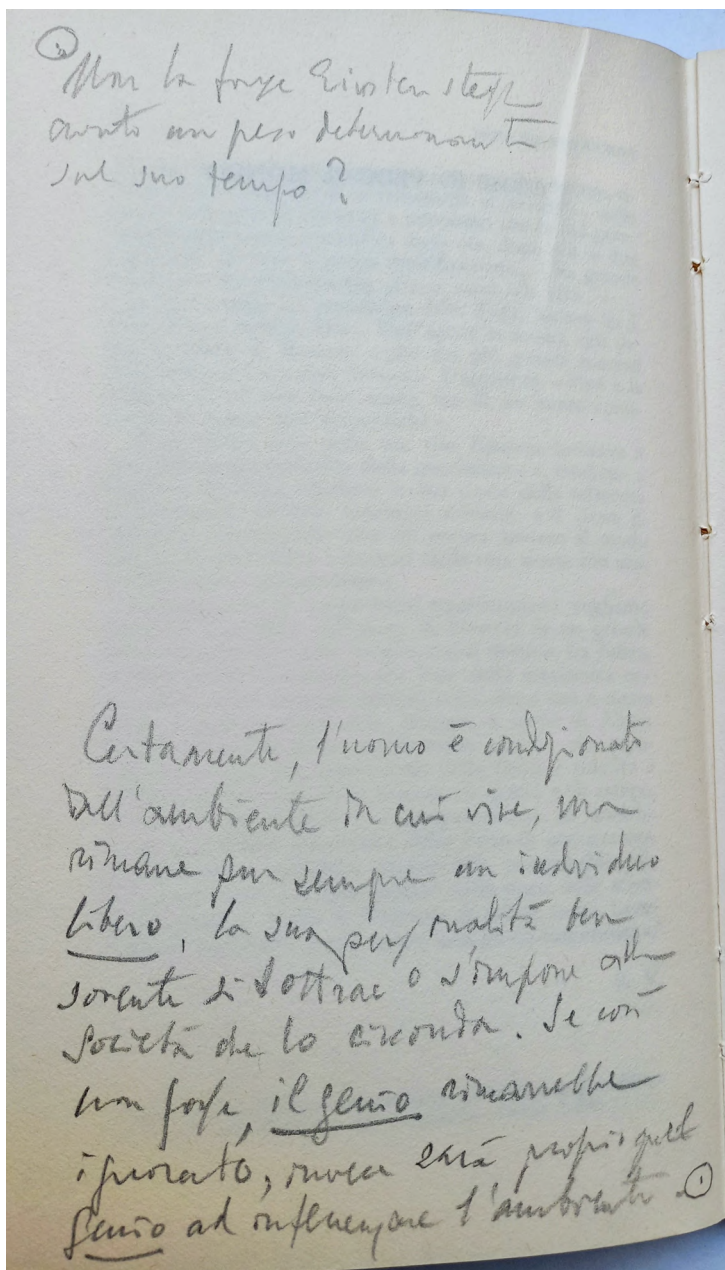 ①
Non ha forse Einsten stesso
avuto un peso determinante
sul suo tempo?
Certamente, l'uomo è condizionato
dall'ambiente in cui vive, ma
rimane pur sempre un individuo
libero, la sua personalità ben
sovente si sottrae o s'impone alla
società che lo circonda. Se così
non fosse, il genio rimarrebbe
ignorato, invece sarà proprio quel
genio ad influenzare l'ambiente. ①